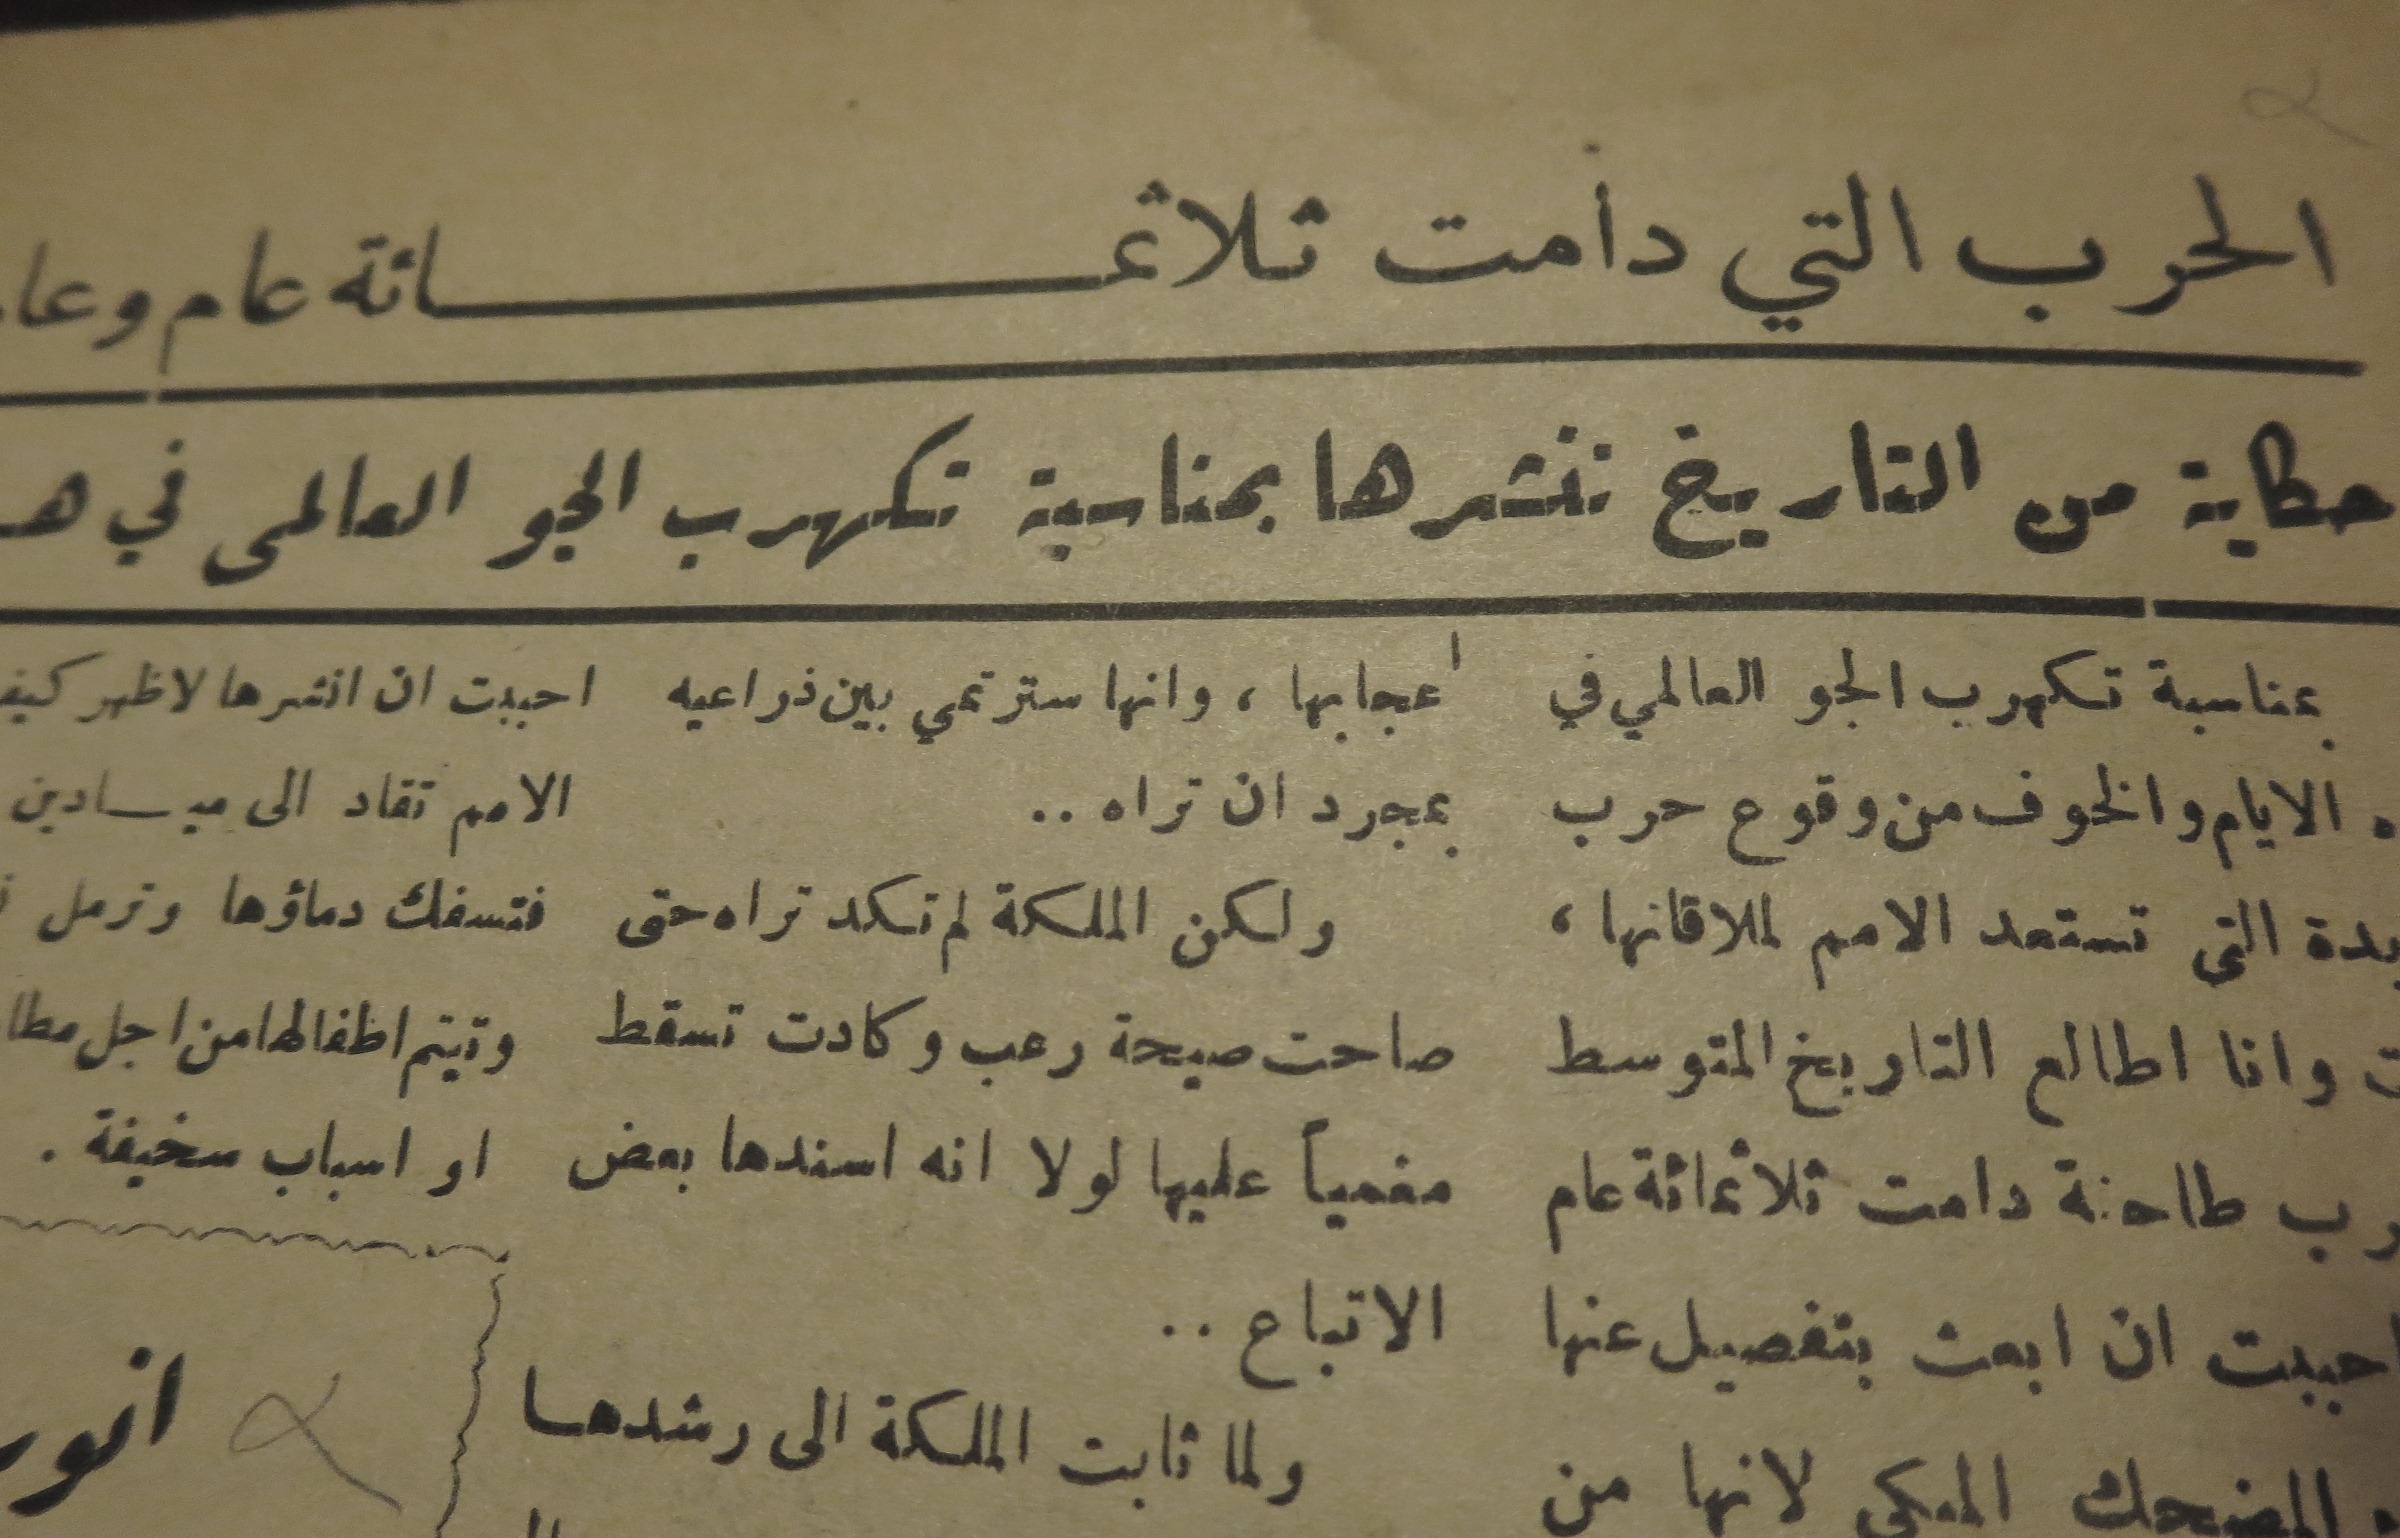 الحرب التي دامت ثلاثمـــــــــائة عام وعا
حكاية من التاريخ ننشرها بمناسبة تكهرب الجو العالمي في هـ
بمناسبة تكهرب الجو العالمي في
ه الايام والخوف من وقوع حرب
يدة التي تستعد الامم لملاقاتها ،
ت وانا اطالع التاريخ المتوسط
رب طاحنة دامت ثلاثمائة عام
احببت ان ابعث بتفصيل عنها
المضحك المبكي لانها من
اعجابها ، وانها سترتمي بين ذراعيه
بمجرد ان تراه ..
ولكن الملكة لم تكد تراه حتى
صاحت صيحة رعب وكادت تسقط
مغمياً عليها لولا انه اسندها بعض
الاتباع ..
ولما ثابت الملكة الى رشدهـا
احببت ان انشرها لاظهر كيف
الامم تقاد الى ميـادين
فتسفك دماؤها وترمل
وتيتم اطفالها من اجل مطا
او اسباب سخيفة .
انور